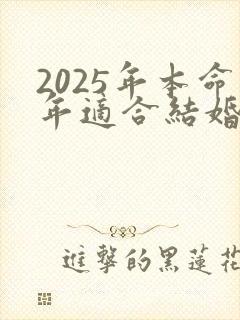 2025年本命
年適合結婚
進擊的黑蓮花